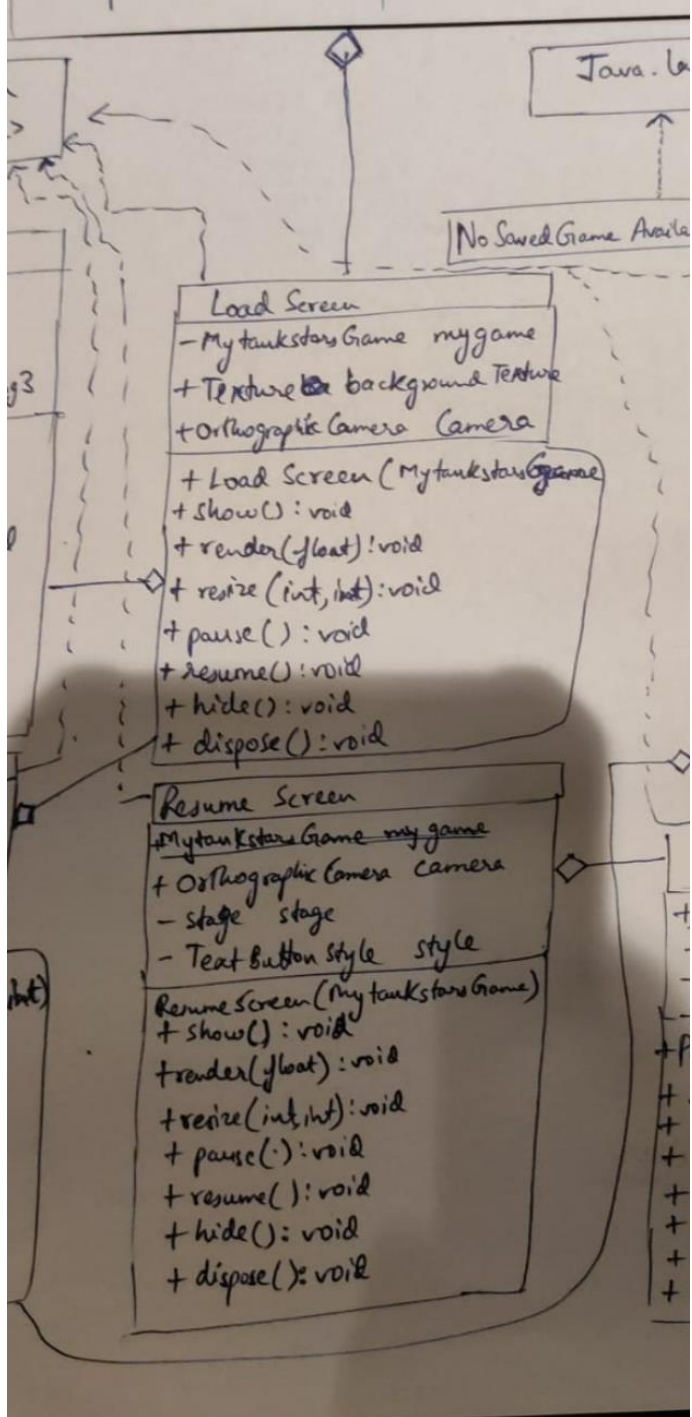 Java.la
>
No Saved Game Availa
Load Screen
- Mytankstars Game mygame
+ Texture background Texture
+ Orthographic Camera Camera
g3
+ Load Screen (Mytankstars Game
+ show() : void
+ render(float) : void
+ resize (int, int) : void
+ pause() : void
+ resume() : void
+ hide() : void
+ dispose() : void
Resume Screen
+ Mytankstars Game my game
+ Orthographic Camera camera
- stage stage
- Text Button Style style
int)
Resume Screen (Mytankstars Game)
+ show() : void
+ render(float) : void
+ resize(int, int) : void
+ pause(.) : void
+ resume( ) : void
+ hide() : void
+ dispose() : void
+
-
-
+ P
+
+
+
+
+
+
+